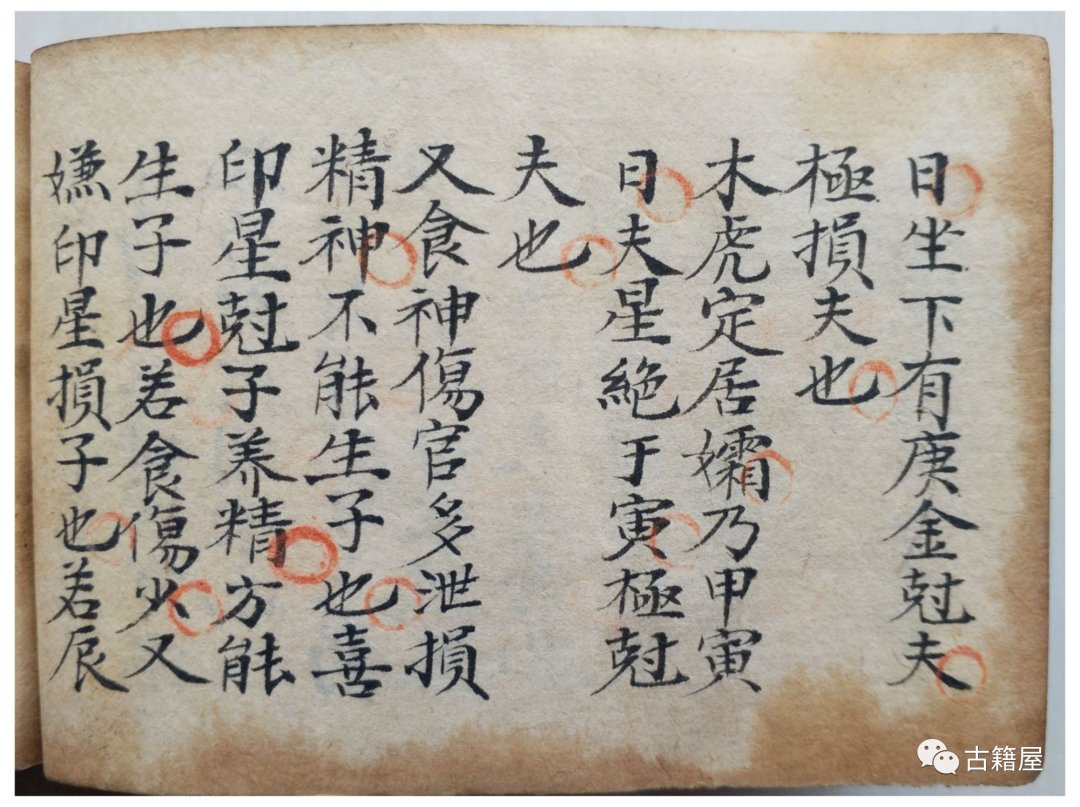 日坐下有庚金尅夫
極損夫也
木虎定居孀乃甲寅
日夫星絶于寅極尅
夫也
又食神傷官多泄損
精神不能生子也喜
印星尅子养精方能
生子也若食傷少又
嫌印星損子也若辰
古籍屋